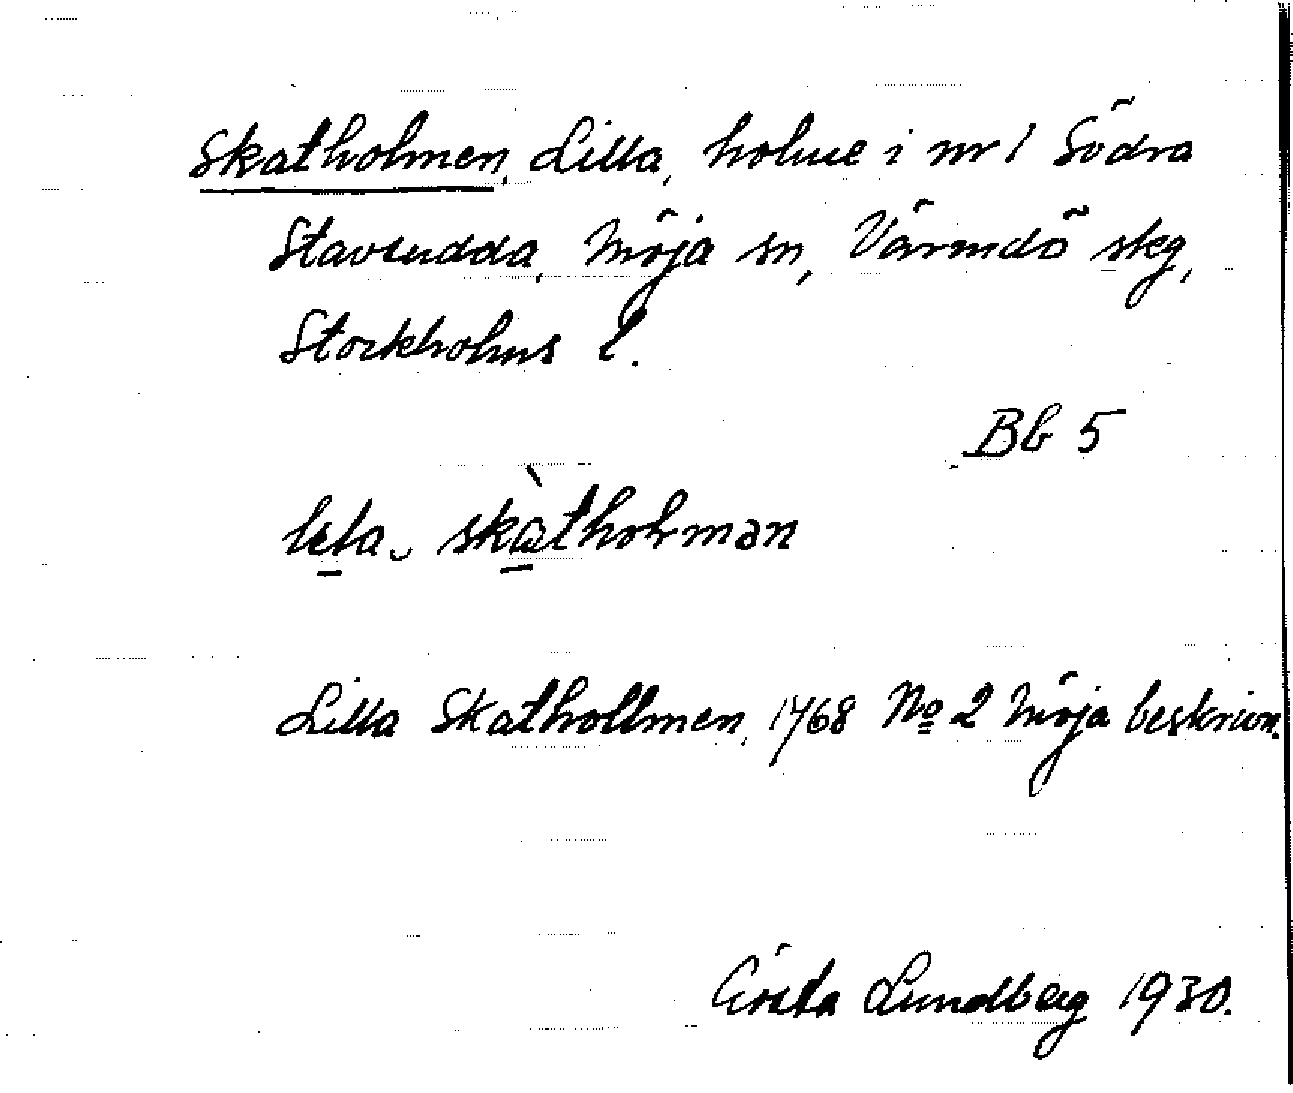 Skatholmen, Lilla, holme i nr 1 Södra
Stavsudda, Möja sn, Värmdö skg,
Stockholms l.
Bb 5
skàthoɫmən
Lilla Skathollmen, 1768 No 2 Möja beskrivn.
Gösta Lundberg 1930.